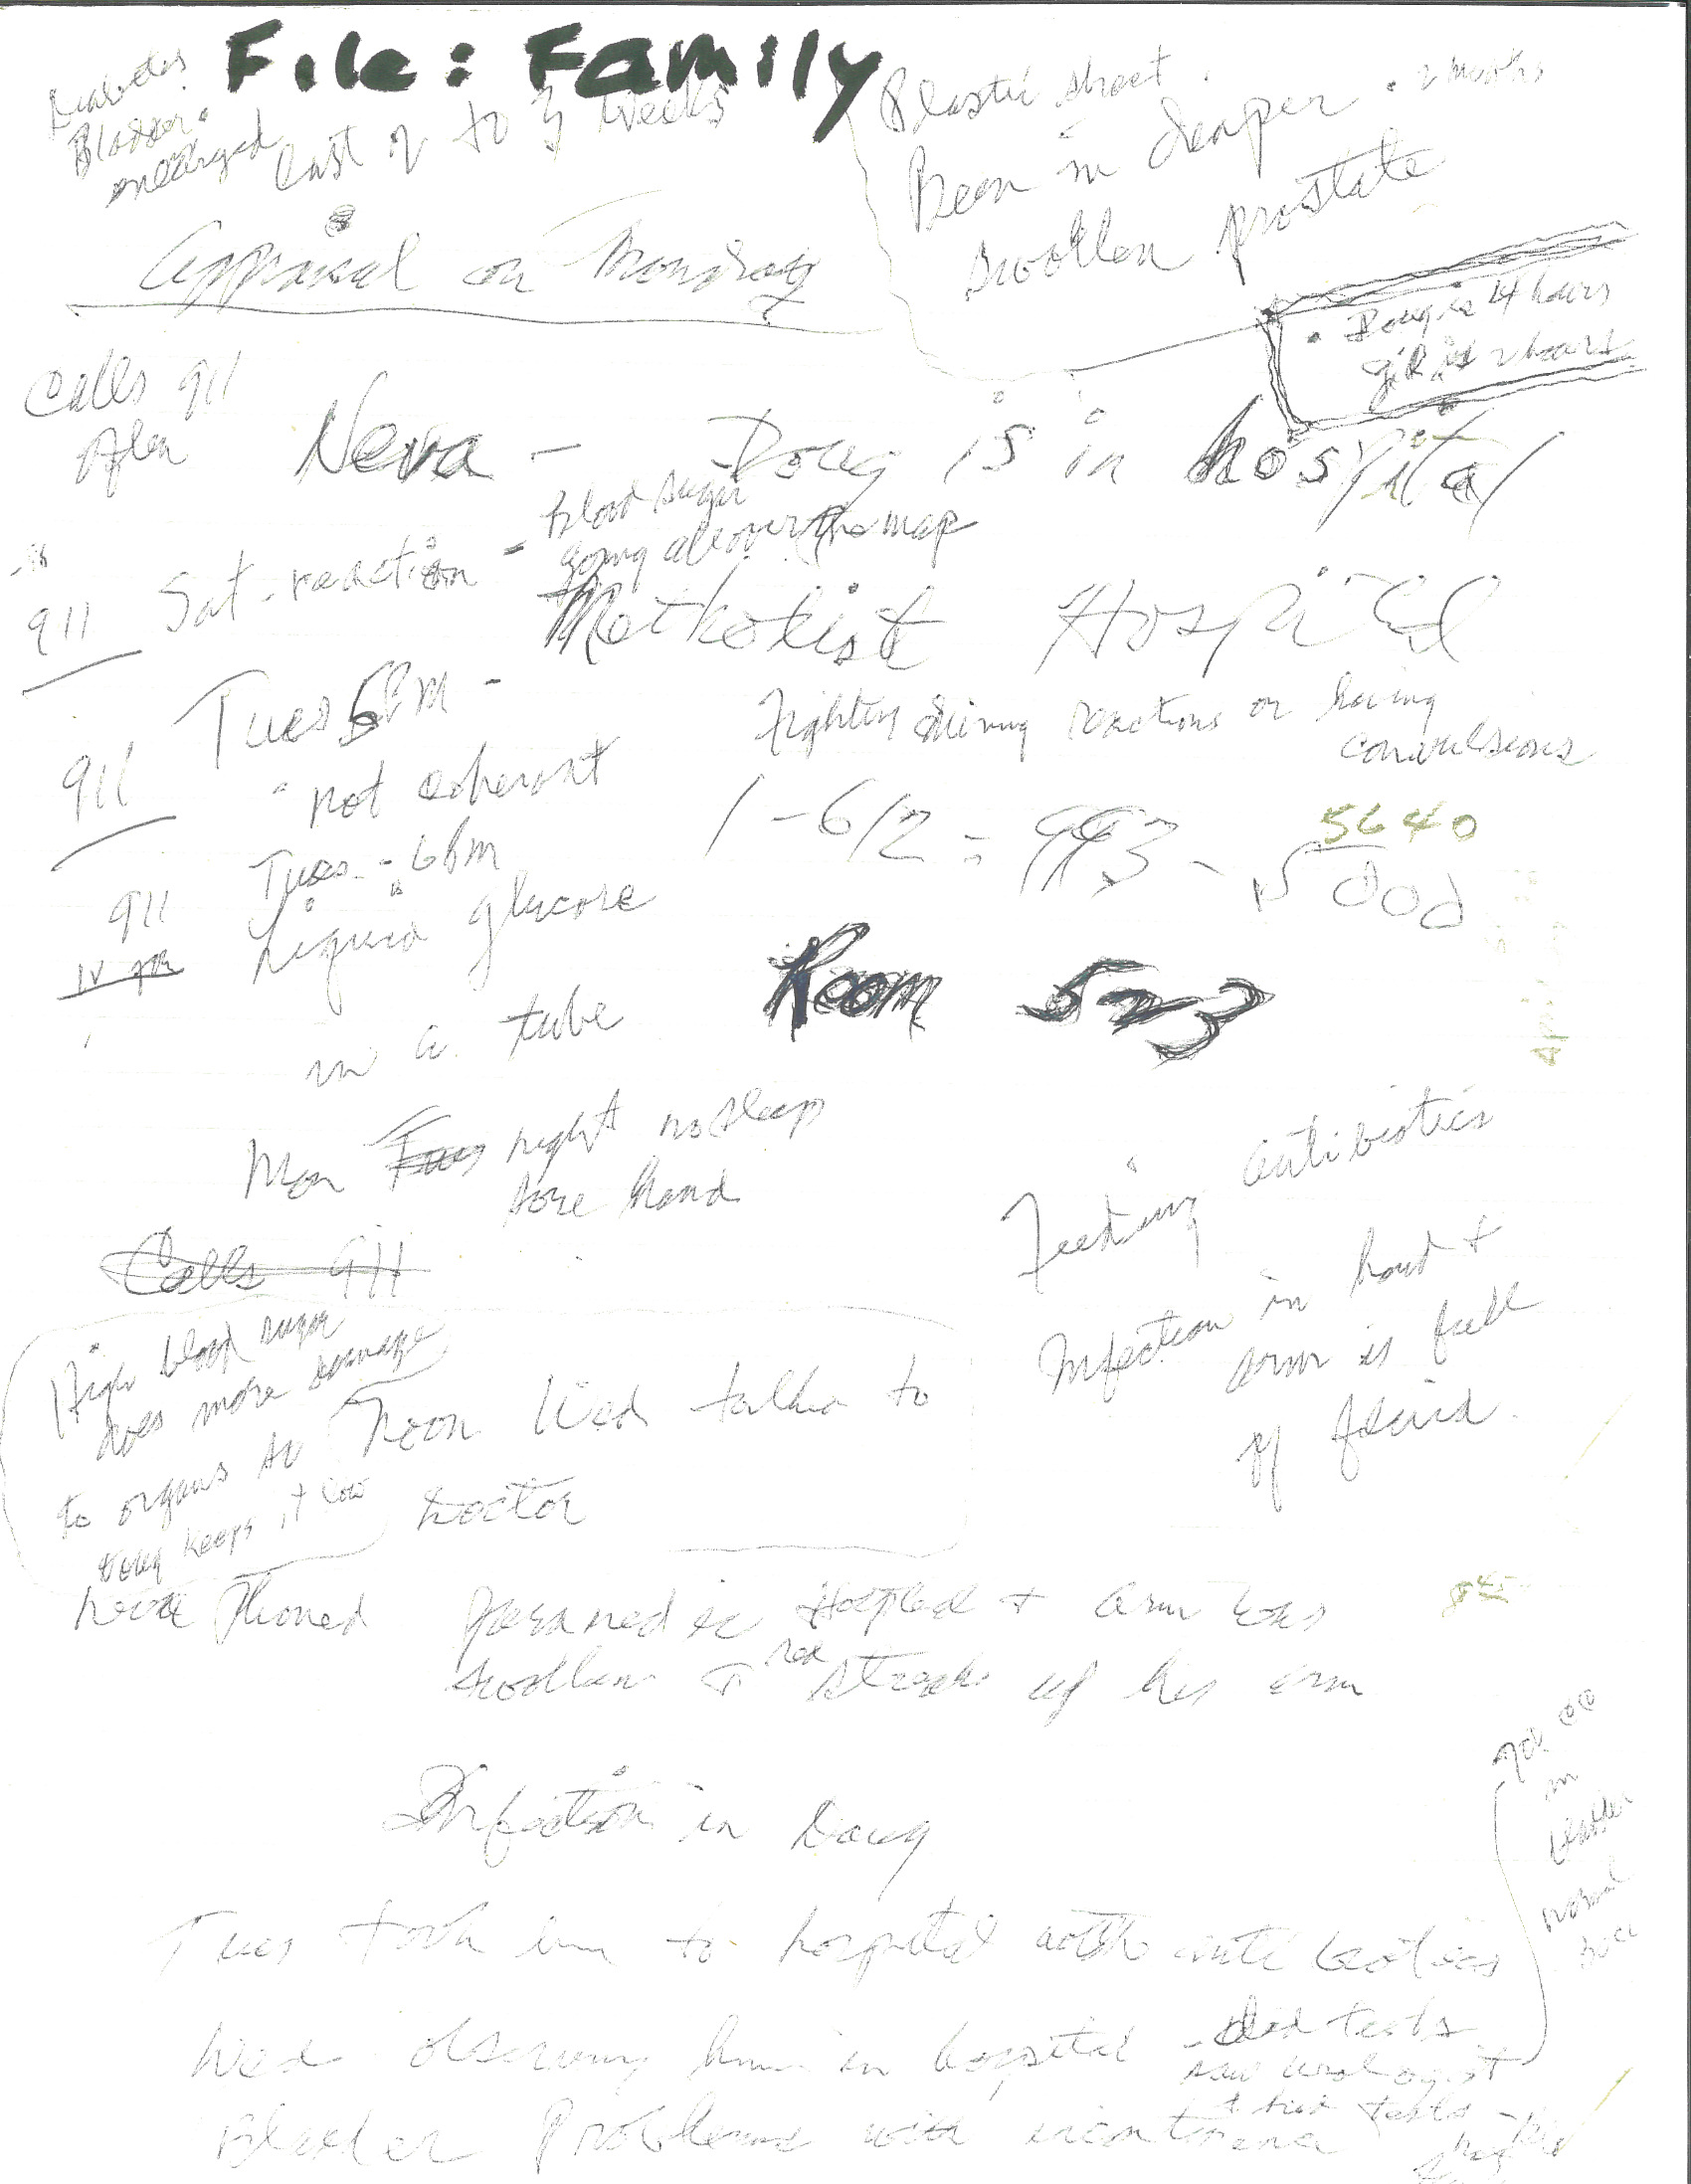 File: Family
Diabetes
Bladder
enlarged
last 2 to 3 weeks
Plastic sheet
Been in deaper . 2 months
Swollen prostate
Appraisal on Monday
Doug is 4 hours
2 hours
Calls 911
often
Neva - Doug is in hospital
911 Sat - reaction - blood sugar
going all over the map
Methodist Hospital
911 Tues 6 PM -
not coherent
Fighting during reactions or having
convulsions
1-612-993-5000
5640
911 Tues - 6 PM
IV
Liquid glucose
in a tube
Room 523
Mon Tues night no sleep
sore hand
Calls 911
Feeding antibiotics
Infection in hand +
arm is full
of fluid.
High blood sugar
does more damage
to organs so
Doug keeps it low
Noon Wed talked to
Doctor
Neva Phoned Hospital + arm was
swollen + red streak up his arm
Infection in Doug
Tues took him to hospital with antibiotics
Wed observing him in hospital - did tests
saw urologist
+ did tests
Bladder Problems with
900 cc
in
bladder
normal